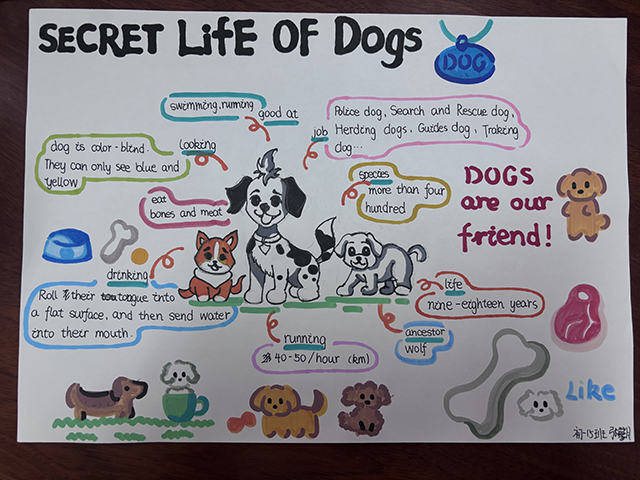 SECRET LifE OF Dogs
DOG
swimming,running
good at
job
Police dog, Search and Rescue dog,
Herding dogs, Guides dog, Traking
dog...
looking
dog is color-blind.
They can only see blue and
yellow
eat
bones and meat
species
more than four
hundred
DOGS
are our
friend!
drinking
Roll their tongue into
a flat surface, and then send water
into their mouth.
life
nine-eighteen years
ancestor
wolf
running
40-50/hour (km)
Like
初一15班